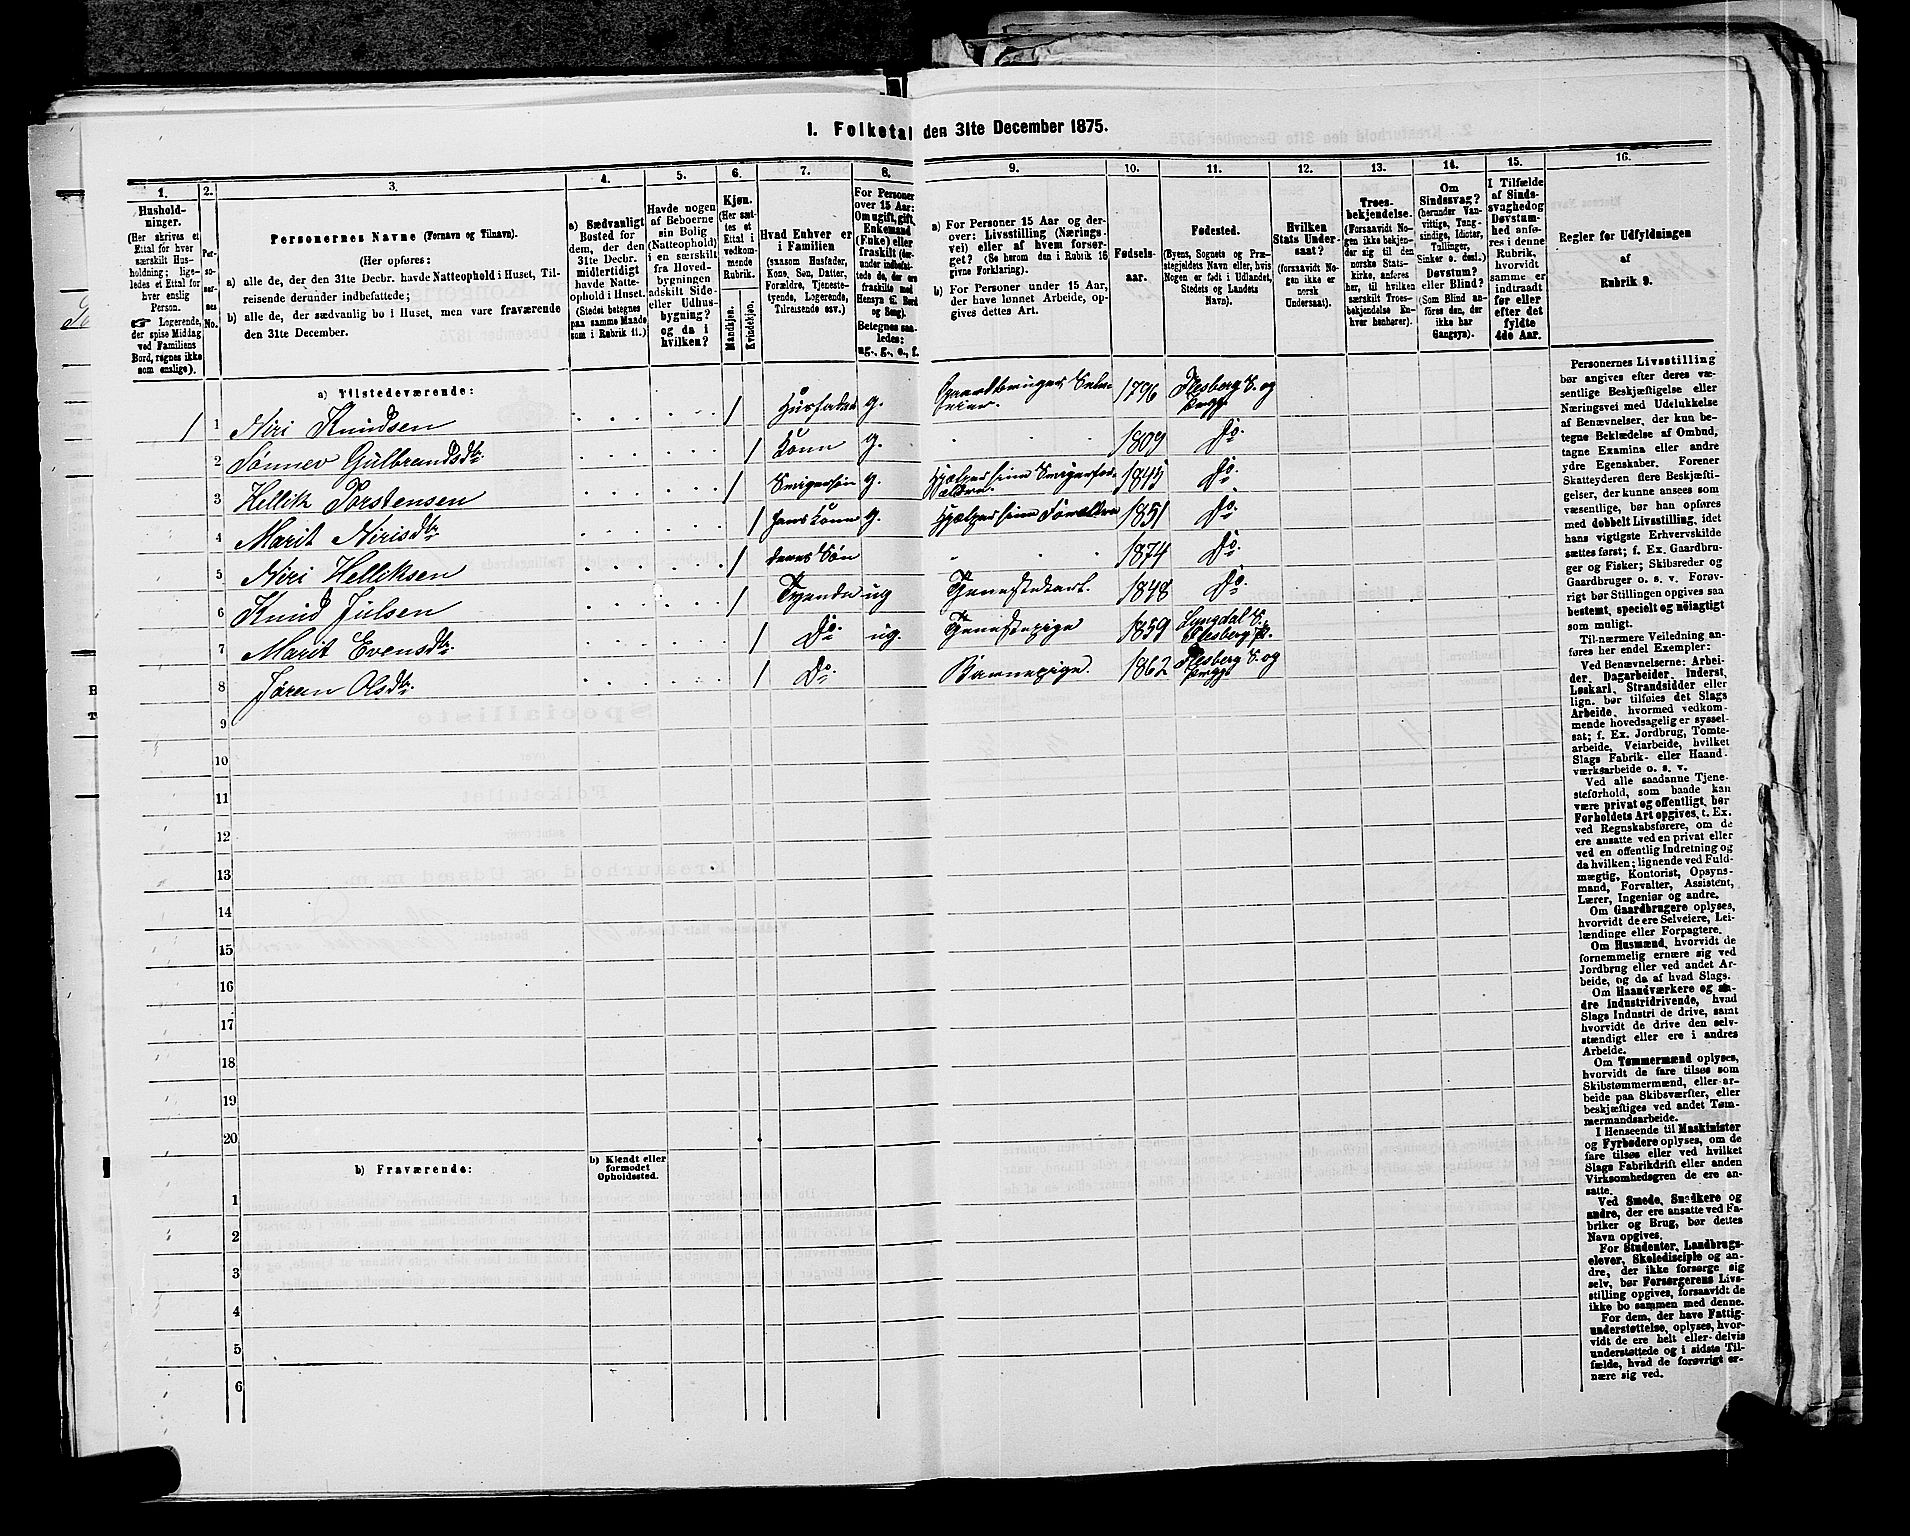 1. Folketal den 31te December 1875.
1.
Hushold-
ninger.
(Her skrives et
Ettal for hver
særskilt Hus-
holdning; lige-
ledes et Ettal for
hver enslig
Person.
☞ Logerende,
der spise Middag
ved Familiens
Bord, regnes ikke
som enslige).
2.
Per-
so-
ner-
nes
No.
3.
Personernes Navne (Fornavn og Tilnavn).
(Her opføres:
a) alle de, der den 31te Decbr. havde Natteophold i Huset, Til-
reisende derunder indbefattede;
b) alle de, der sædvanlig bo i Huset, men vare fraværende
den 31te December.
4.
a) Sædvanligt
Bosted for
dem, der den
31te Decbr.
midlertidigt
havde Natte-
ophold i Huset.
(Stedet betegnes
paa samme Maade
som i Rubrik 11.)
5.
Havde nogen
af Beboerne
sin Bolig
(Natteophold)
i en særskilt
fra Hoved-
bygningen
adskilt Side-
eller Udhus-
bygning?
og da i
hvilken?
6.
Kjøn.
(Her sæt-
tes et
Ettal i
vedkom-
mende
Rubrik.
Mandkjøn.
Kvindekjøn.
7.
Hvad Enhver er
i Familien
(saasom Husfader,
Kone, Søn, Datter,
Forældre, Tjeneste-
tyende, Logerende,
Tilreisende osv.)
8.
For Personer
over 15 Aar:
Om ugift, gift,
Enkemand
(Enke) eller
fraskilt (der-
under indbefat-
tede de, der ere
fraskilte med
Hensyn til Bord
og Seng).
Betegnes saa-
ledes:
ug., g., e., f.
9.
a) For Personer 15 Aar og der-
over: Livsstilling (Nærings-
vei) eller af hvem forsør-
get? (Se herom den i Rubrik 16
givne Forklaring).
b) For Personer under 15 Aar,
der have lønnet Arbeide, op-
gives dettes Art.
10.
Fødsels-
aar.
11.
Fødested.
(Byens, Sognets og Præ-
stegjeldets Navn eller, hvis
Nogen er født i Udlandet,
Stedets og Landets
Navn).
12.
Hvilken
Stats Under-
saat?
(forsaavidt No-
gen ikke er
norsk
Undersaat).
13.
Troes-
bekjendelse.
(Forsaavidt No-
gen ikke bekjen-
der sig til den
norske Stats-
kirke, anføres
her, til hvilken
særskilt Troes-
bekjendelse En-
hver henhører).
14.
Om
Sindssvag?
(herunder Van-
vittige, Tung-
sindige, Idioter,
Tullinger,
Sinker o. desl.)
Døvstum?
eller Blind?
(Som Blind an-
føres den, der
ikke har
Gangsyn).
15.
I Tilfælde
af Sinds-
svaghed og
Døvstum-
hed anfø-
res i denne
Rubrik,
hvorvidt
samme er
indtraadt
før eller
efter det
fyldte
4de Aar.
16.
Regler for Udfyldningen
af
Rubrik 9.
a) Tilstedeværende:
1 1 Niri Knudsen 1 Husfader g. Gaardbruger Selv-
eier. 1796 Flesberg S. og
Prgj.
2 Sønnev Gulbrandsdtr 1 Kone g. 1809 Do
3 Hellik Torstensen 1 Svigersøn g. Hjælper sine Svigerfor-
ældre. 1845 Do
4 Marit Nirisdtr 1 hans Kone g. Hjælper sine Forældre 1851 Do
5 Niri Helliksen 1 deres Søn 1874 Do
6 Knud Juelsen 1 Tyende ug Tjenestekarl. 1848 Do
7 Marit Evensdtr. 1 Do ug. Tjenestepige 1859 Lyngdal S.
Flesberg P.
8 Jøran Olsdtr 1 Do Barnepige. 1862 Flesberg S. og
Prgj.
9
10
11
12
13
14
15
16
17
18
19
20
b) Fraværende:
b) Kjendt eller
formodet
Opholdssted.
1
2
3
4
5
6
Personernes Livsstilling
bør angives efter deres væ-
sentlige Beskjæftigelse eller
Næringsvei med Udelukkelse
af Benævnelser, der kun be-
tegne Beklædelse af Ombud,
tagne Examina eller andre
ydre Egenskaber. Forener
Skatteyderen flere Beskjæfti-
gelser, der kunne ansees som
væsentlige, bør han opføres
med dobbelt Livsstilling, idet
hans vigtigste Erhvervskilde
sættes først; f. Ex. Gaardbru-
ger og Fisker; Skibsreder og
Gaardbruger o. s. v. Forøv-
rigt bør Stillingen opgives saa
bestemt, specielt og nøiagtigt
som muligt.
Til nærmere Veiledning an-
føres her endel Exempler:
Ved Benævnelserne: Arbei-
der, Dagarbeider, Inderst,
Løskarl, Strandsidder eller
lign. bør tilføies det Slags
Arbeide, hvormed vedkom-
mende hovedsagelig er syssel-
sat; f. Ex. Jordbrug, Tomte-
arbeide, Veiarbeide, hvilket
Slags Fabrik- eller Haand-
værksarbeide o. s. v.
Ved alle saadanne Tjene-
steforhold, som baade kan
være privat og offentligt, bør
Forholdets Art opgives, t. Ex.
ved Regnskabsførere, om de
ere ansatte ved en privat eller
ved en offentlig Indretning og
da hvilken; lignende ved Fuld-
mægtig, Kontorist, Opsyns-
mand, Forvalter, Assistent,
Lærer, Ingeniør og andre.
Om Gaardbrugere oplyses,
hvorvidt de ere Selveiere, Lei-
lændinge eller Forpagtere.
Om Husmænd, hvorvidt de
fornemmelig ernære sig ved
Jordbrug eller ved andet Ar-
beide, og da af hvad Slags.
Om Haandværkere og an-
dre Industridrivende, hvad
Slags Industri de drive, samt
hvorvidt de drive den selv-
stændigt eller ere i andres
Arbeide.
Om Tømmermænd oplyses,
hvorvidt de fare tilsøs som
Skibstømmermænd, eller ar-
beide paa Skibsværfter, eller
beskjæftiges ved andet Tøm-
mermandsarbeide.
I Henseende til Maskinister
og Fyrbødere oplyses, om de
fare tilsøs eller ved hvilket
Slags Fabrikdrift eller anden
Virksomhedsgren de ere an-
satte.
Ved Smede, Snedkere og
andre, der ere ansatte ved Fa-
briker og Brug, bør dettes
Navn opgives.
For Studenter, Landbrugs-
elever, Skoledisciple og an-
dre, der ikke forsørge sig
selv, bør Forsørgerens Livs-
stilling opgives, forsaavidt de
ikke bo sammen med denne.
For dem, der have Fattig-
understøttelse, oplyses, hvor-
vidt de ere helt eller delvis
understøttede og i sidste Til-
fælde, hvad de forøvrigt er-
nære sig ved.